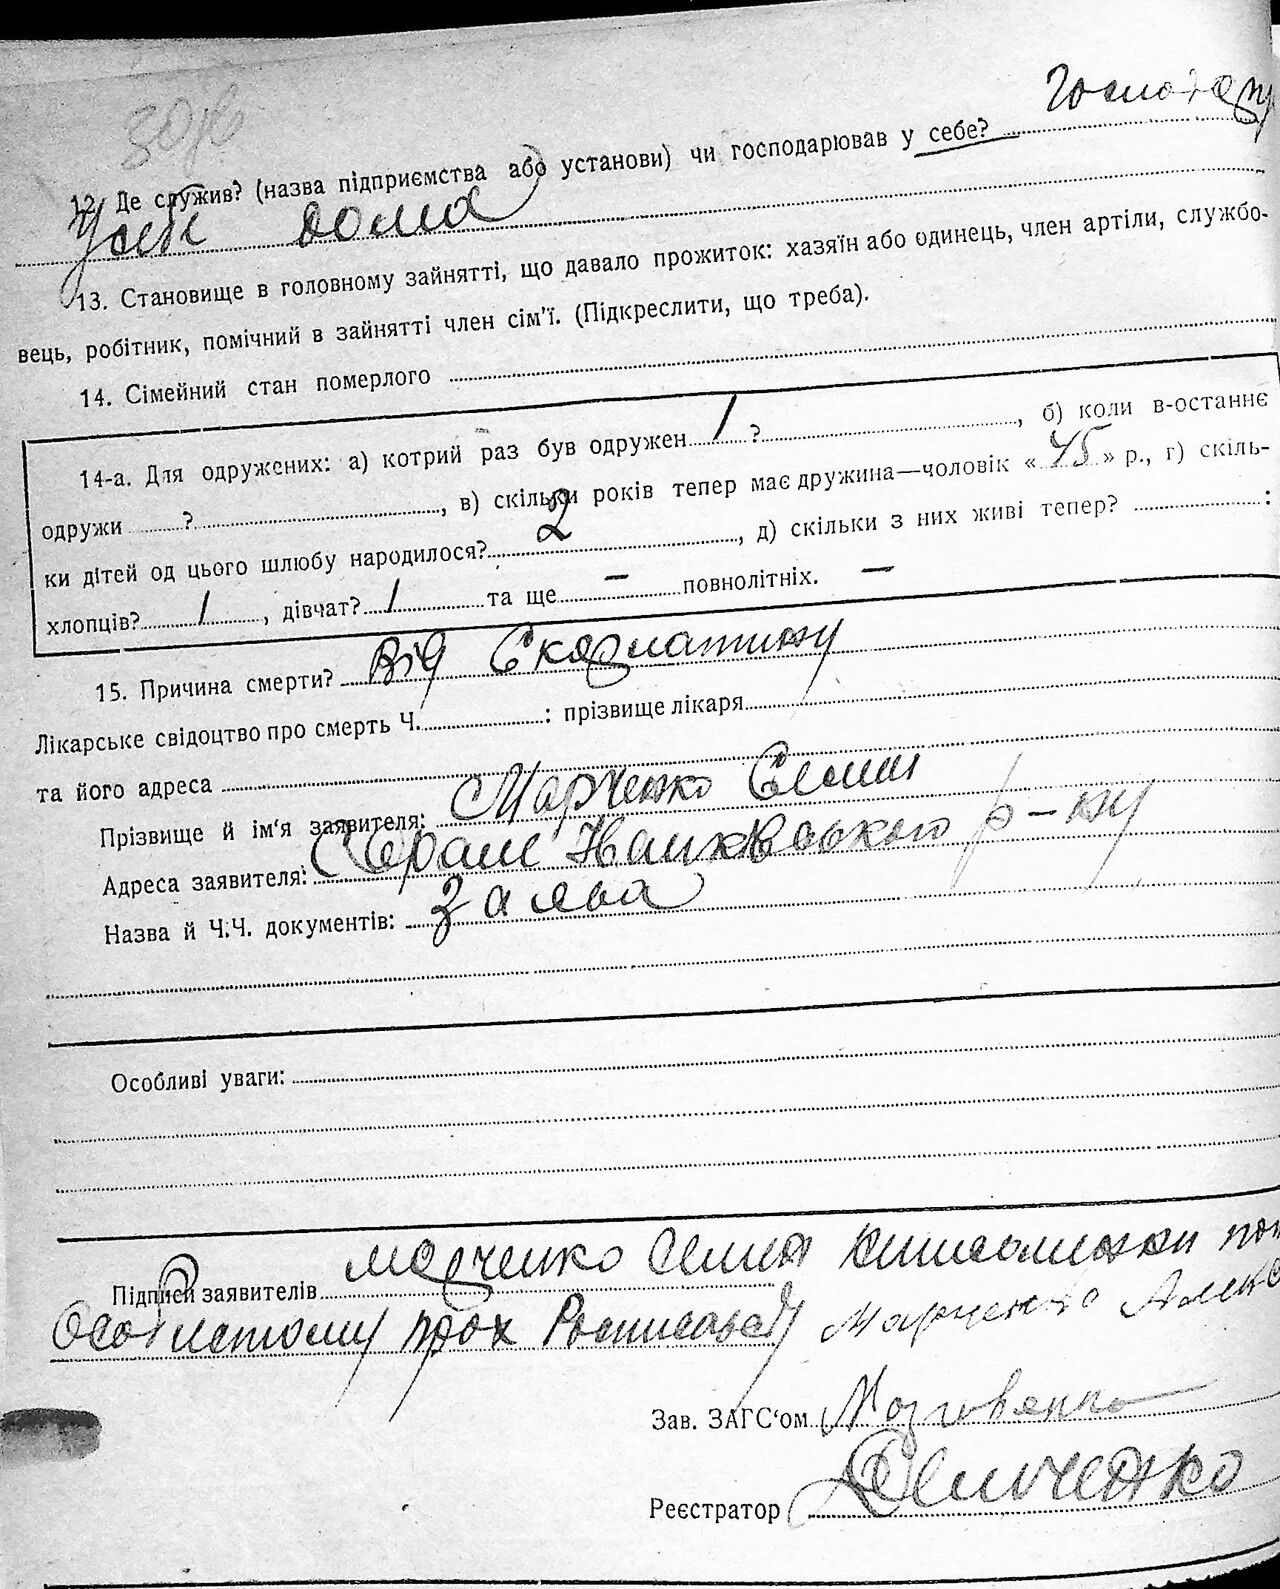 Господар
12. Де служив? (назва підприємства або установи) чи господарював у себе?
Усебе дома
13. Становище в головному зайнятті, що давало прожиток: хазяїн або одинець, член артіли, службо-
вець, робітник, помічний в зайнятті член сім'ї. (Підкреслити, що треба).
14. Сімейний стан померлого
14-а. Для одружених: а) котрий раз був одружен 1 ?, б) коли в-останнє
одружи ?, в) скільки років тепер має дружина—чоловік «45» р., г) скіль-
ки дітей од цього шлюбу народилося? 2, д) скільки з них живі тепер? :
хлопців? 1, дівчат? 1 та ще — повнолітніх. —
15. Причина смерти? Від
Лікарське свідоцтво про смерть Ч. : прізвище лікаря
та його адреса
Прізвище й ім'я заявителя: Марченко Семен
Адреса заявителя: р-ну
Назва й Ч.Ч. документів: Заява
Особливі уваги:
Підписи заявителів Марченко Семен
Особистому прох Росписався Марченко Алекс
Зав. ЗАГС'ом
Реєстратор